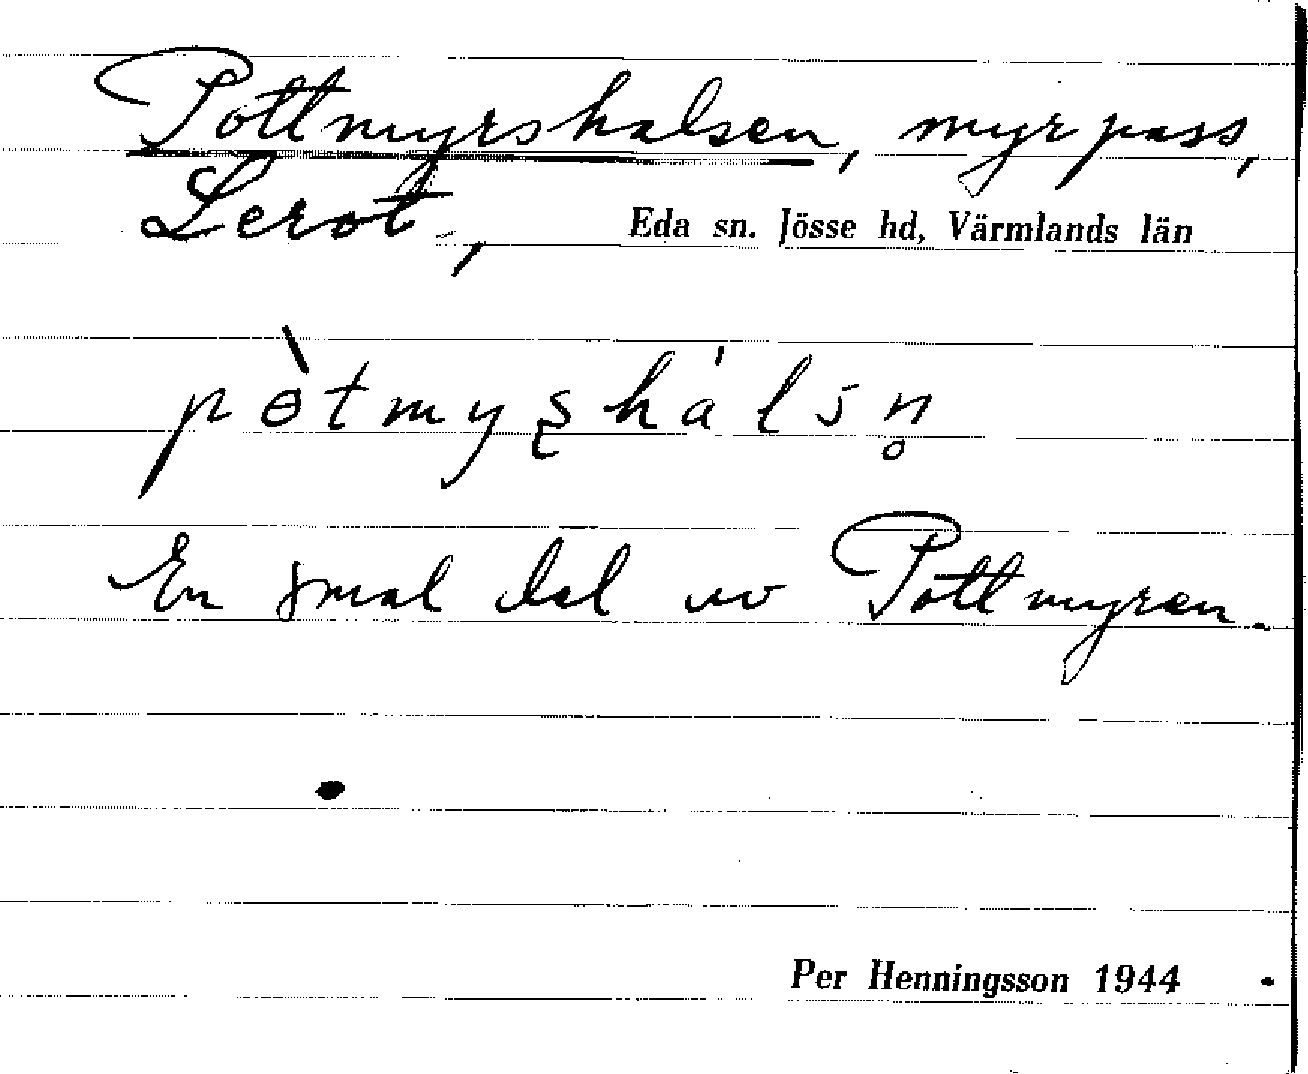 Pottmyrshalsen, myrpass,
Lerot, Eda sn. Jösse hd, Värmlands län
pɵ̀tmyʂhálsn̥
En smal del av Pottmyren.
Per Henningsson 1944